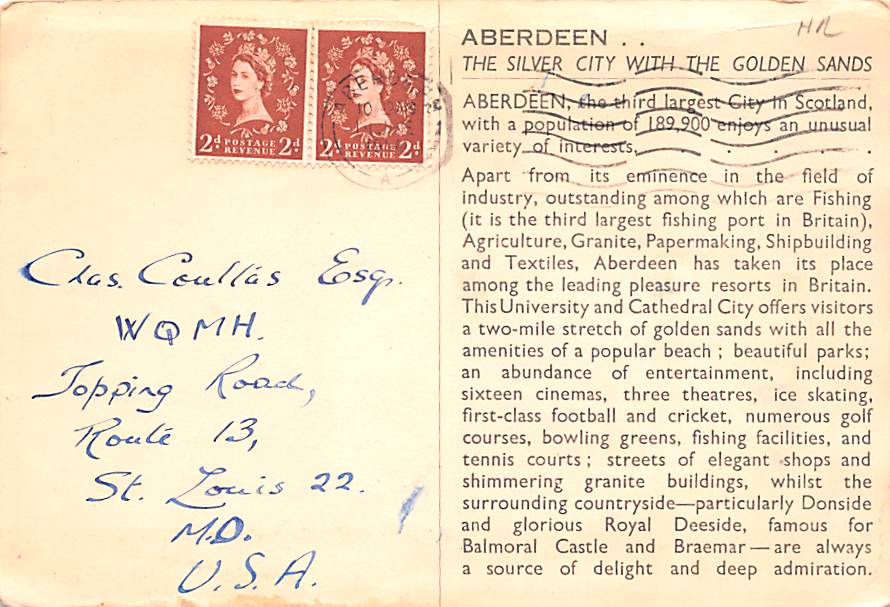 2d POSTAGE REVENUE 2d
2d POSTAGE REVENUE 2d
A
Chas. Coullás Esq.
WQMH.
Topping Road,
Route 13,
St. Louis 22.
M.D.
U.S.A.
HR
ABERDEEN . .
THE SILVER CITY WITH THE GOLDEN SANDS
ABERDEEN, the third largest City in Scotland,
with a population of 189,900 enjoys an unusual
variety of interests, . . . .
Apart from its eminence in the field of
industry, outstanding among which are Fishing
(it is the third largest fishing port in Britain),
Agriculture, Granite, Papermaking, Shipbuilding
and Textiles, Aberdeen has taken its place
among the leading pleasure resorts in Britain.
This University and Cathedral City offers visitors
a two-mile stretch of golden sands with all the
amenities of a popular beach ; beautiful parks;
an abundance of entertainment, including
sixteen cinemas, three theatres, ice skating,
first-class football and cricket, numerous golf
courses, bowling greens, fishing facilities, and
tennis courts ; streets of elegant shops and
shimmering granite buildings, whilst the
surrounding countryside—particularly Donside
and glorious Royal Deeside, famous for
Balmoral Castle and Braemar — are always
a source of delight and deep admiration.